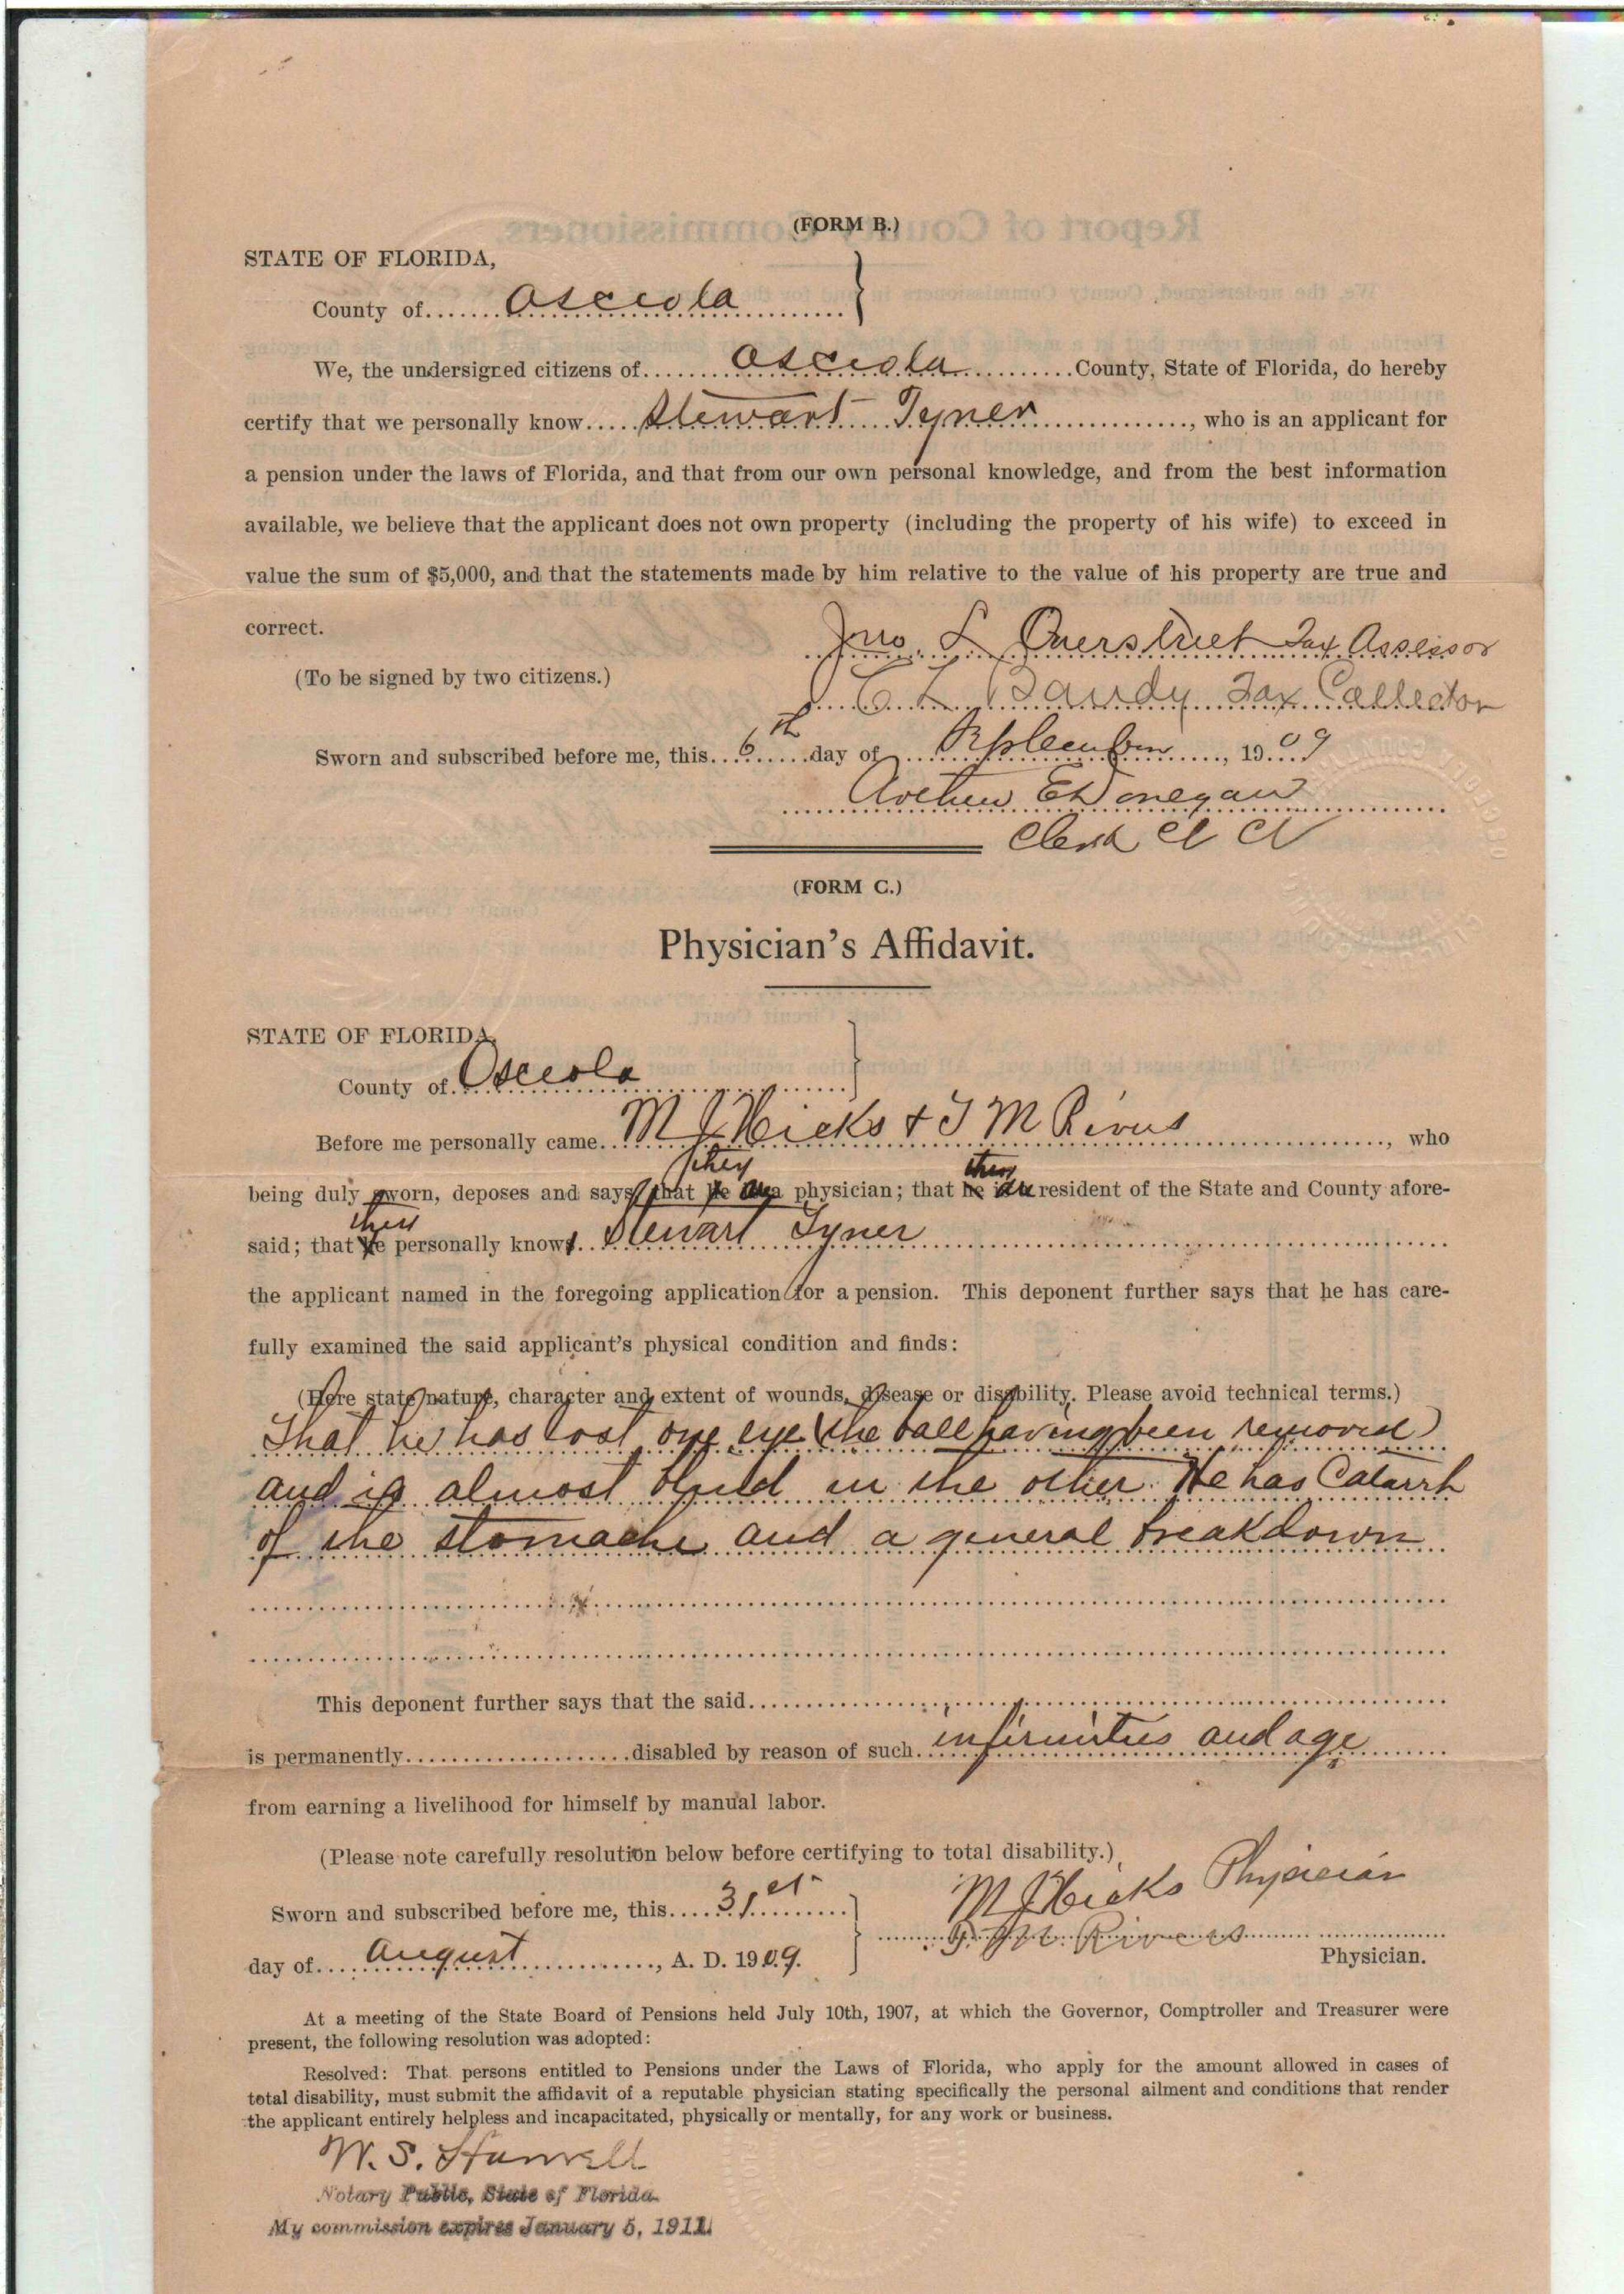 (FORM B.)
STATE OF FLORIDA,
County of Osceola
We, the undersigned citizens of Osceola County, State of Florida, do hereby
certify that we personally know Stewart Tyner, who is an applicant for
a pension under the laws of Florida, and that from our own personal knowledge, and from the best information
available, we believe that the applicant does not own property (including the property of his wife) to exceed in
value the sum of $5,000, and that the statements made by him relative to the value of his property are true and
correct.
Jno. L Overstreet Tax Assessor
(To be signed by two citizens.)
C L Bandy Tax Collector
Sworn and subscribed before me, this 6th day of September, 1909
Arthur E Donegan
Clerk
(FORM C.)
Physician's Affidavit.
STATE OF FLORIDA,
County of Osceola
Before me personally came M J Hicks & T M Rivers, who
they they
being duly sworn, deposes and says that he are a physician; that he are resident of the State and County afore-
they
said; that he personally knows Stewart Tyner
the applicant named in the foregoing application for a pension. This deponent further says that he has care-
fully examined the said applicant's physical condition and finds:
(Here state nature, character and extent of wounds, disease or disability. Please avoid technical terms.)
That he has lost one eye (the ball having been removed)
and is almost blind in the other. He has Catarrh
of the stomache and a general breakdown
This deponent further says that the said
is permanently disabled by reason of such infirmities and age
from earning a livelihood for himself by manual labor.
(Please note carefully resolution below before certifying to total disability.)
M J Hicks Physician
Sworn and subscribed before me, this 31st
T. M. Rivers
day of August, A. D. 1909.
Physician.
At a meeting of the State Board of Pensions held July 10th, 1907, at which the Governor, Comptroller and Treasurer were
present, the following resolution was adopted:
Resolved: That persons entitled to Pensions under the Laws of Florida, who apply for the amount allowed in cases of
total disability, must submit the affidavit of a reputable physician stating specifically the personal ailment and conditions that render
the applicant entirely helpless and incapacitated, physically or mentally, for any work or business.
W. S.
Notary Public, State of Florida.
My commission expires January 5, 1911